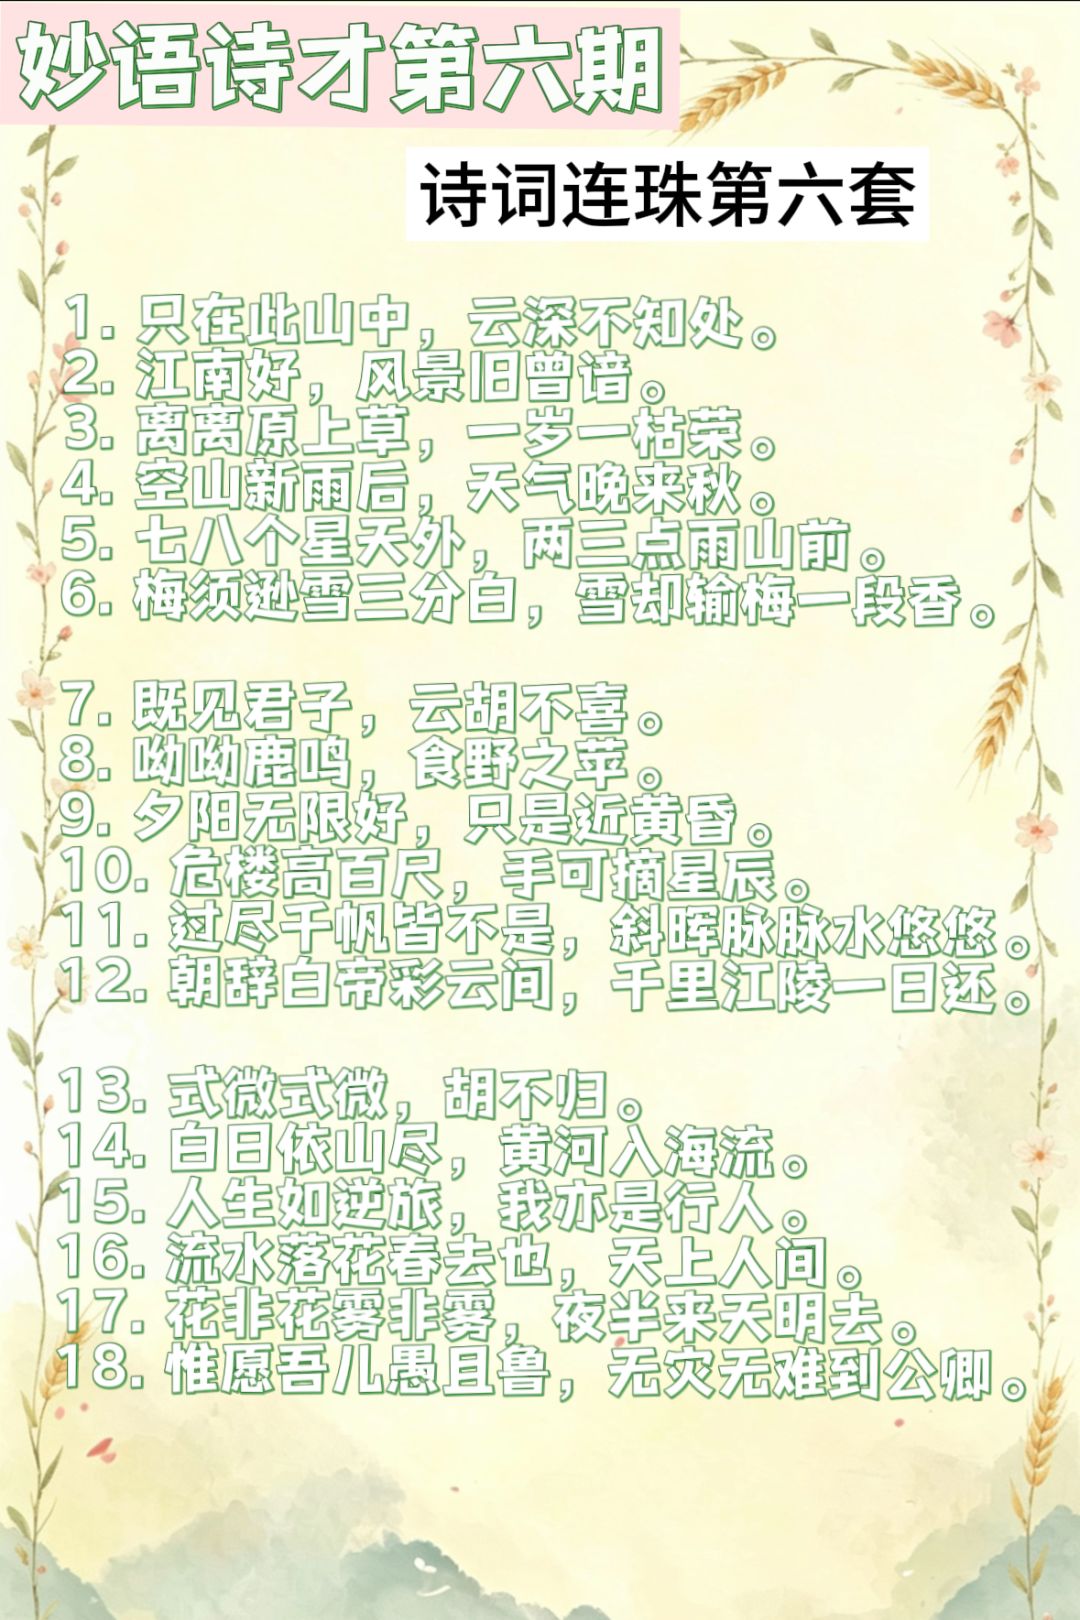 妙语诗才第六期
诗词连珠第六套
1. 只在此山中，云深不知处。
2. 江南好，风景旧曾谙。
3. 离离原上草，一岁一枯荣。
4. 空山新雨后，天气晚来秋。
5. 七八个星天外，两三点雨山前。
6. 梅须逊雪三分白，雪却输梅一段香。
7. 既见君子，云胡不喜。
8. 呦呦鹿鸣，食野之苹。
9. 夕阳无限好，只是近黄昏。
10. 危楼高百尺，手可摘星辰。
11. 过尽千帆皆不是，斜晖脉脉水悠悠。
12. 朝辞白帝彩云间，千里江陵一日还。
13. 式微式微，胡不归。
14. 白日依山尽，黄河入海流。
15. 人生如逆旅，我亦是行人。
16. 流水落花春去也，天上人间。
17. 花非花雾非雾，夜半来天明去。
18. 惟愿吾儿愚且鲁，无灾无难到公卿。